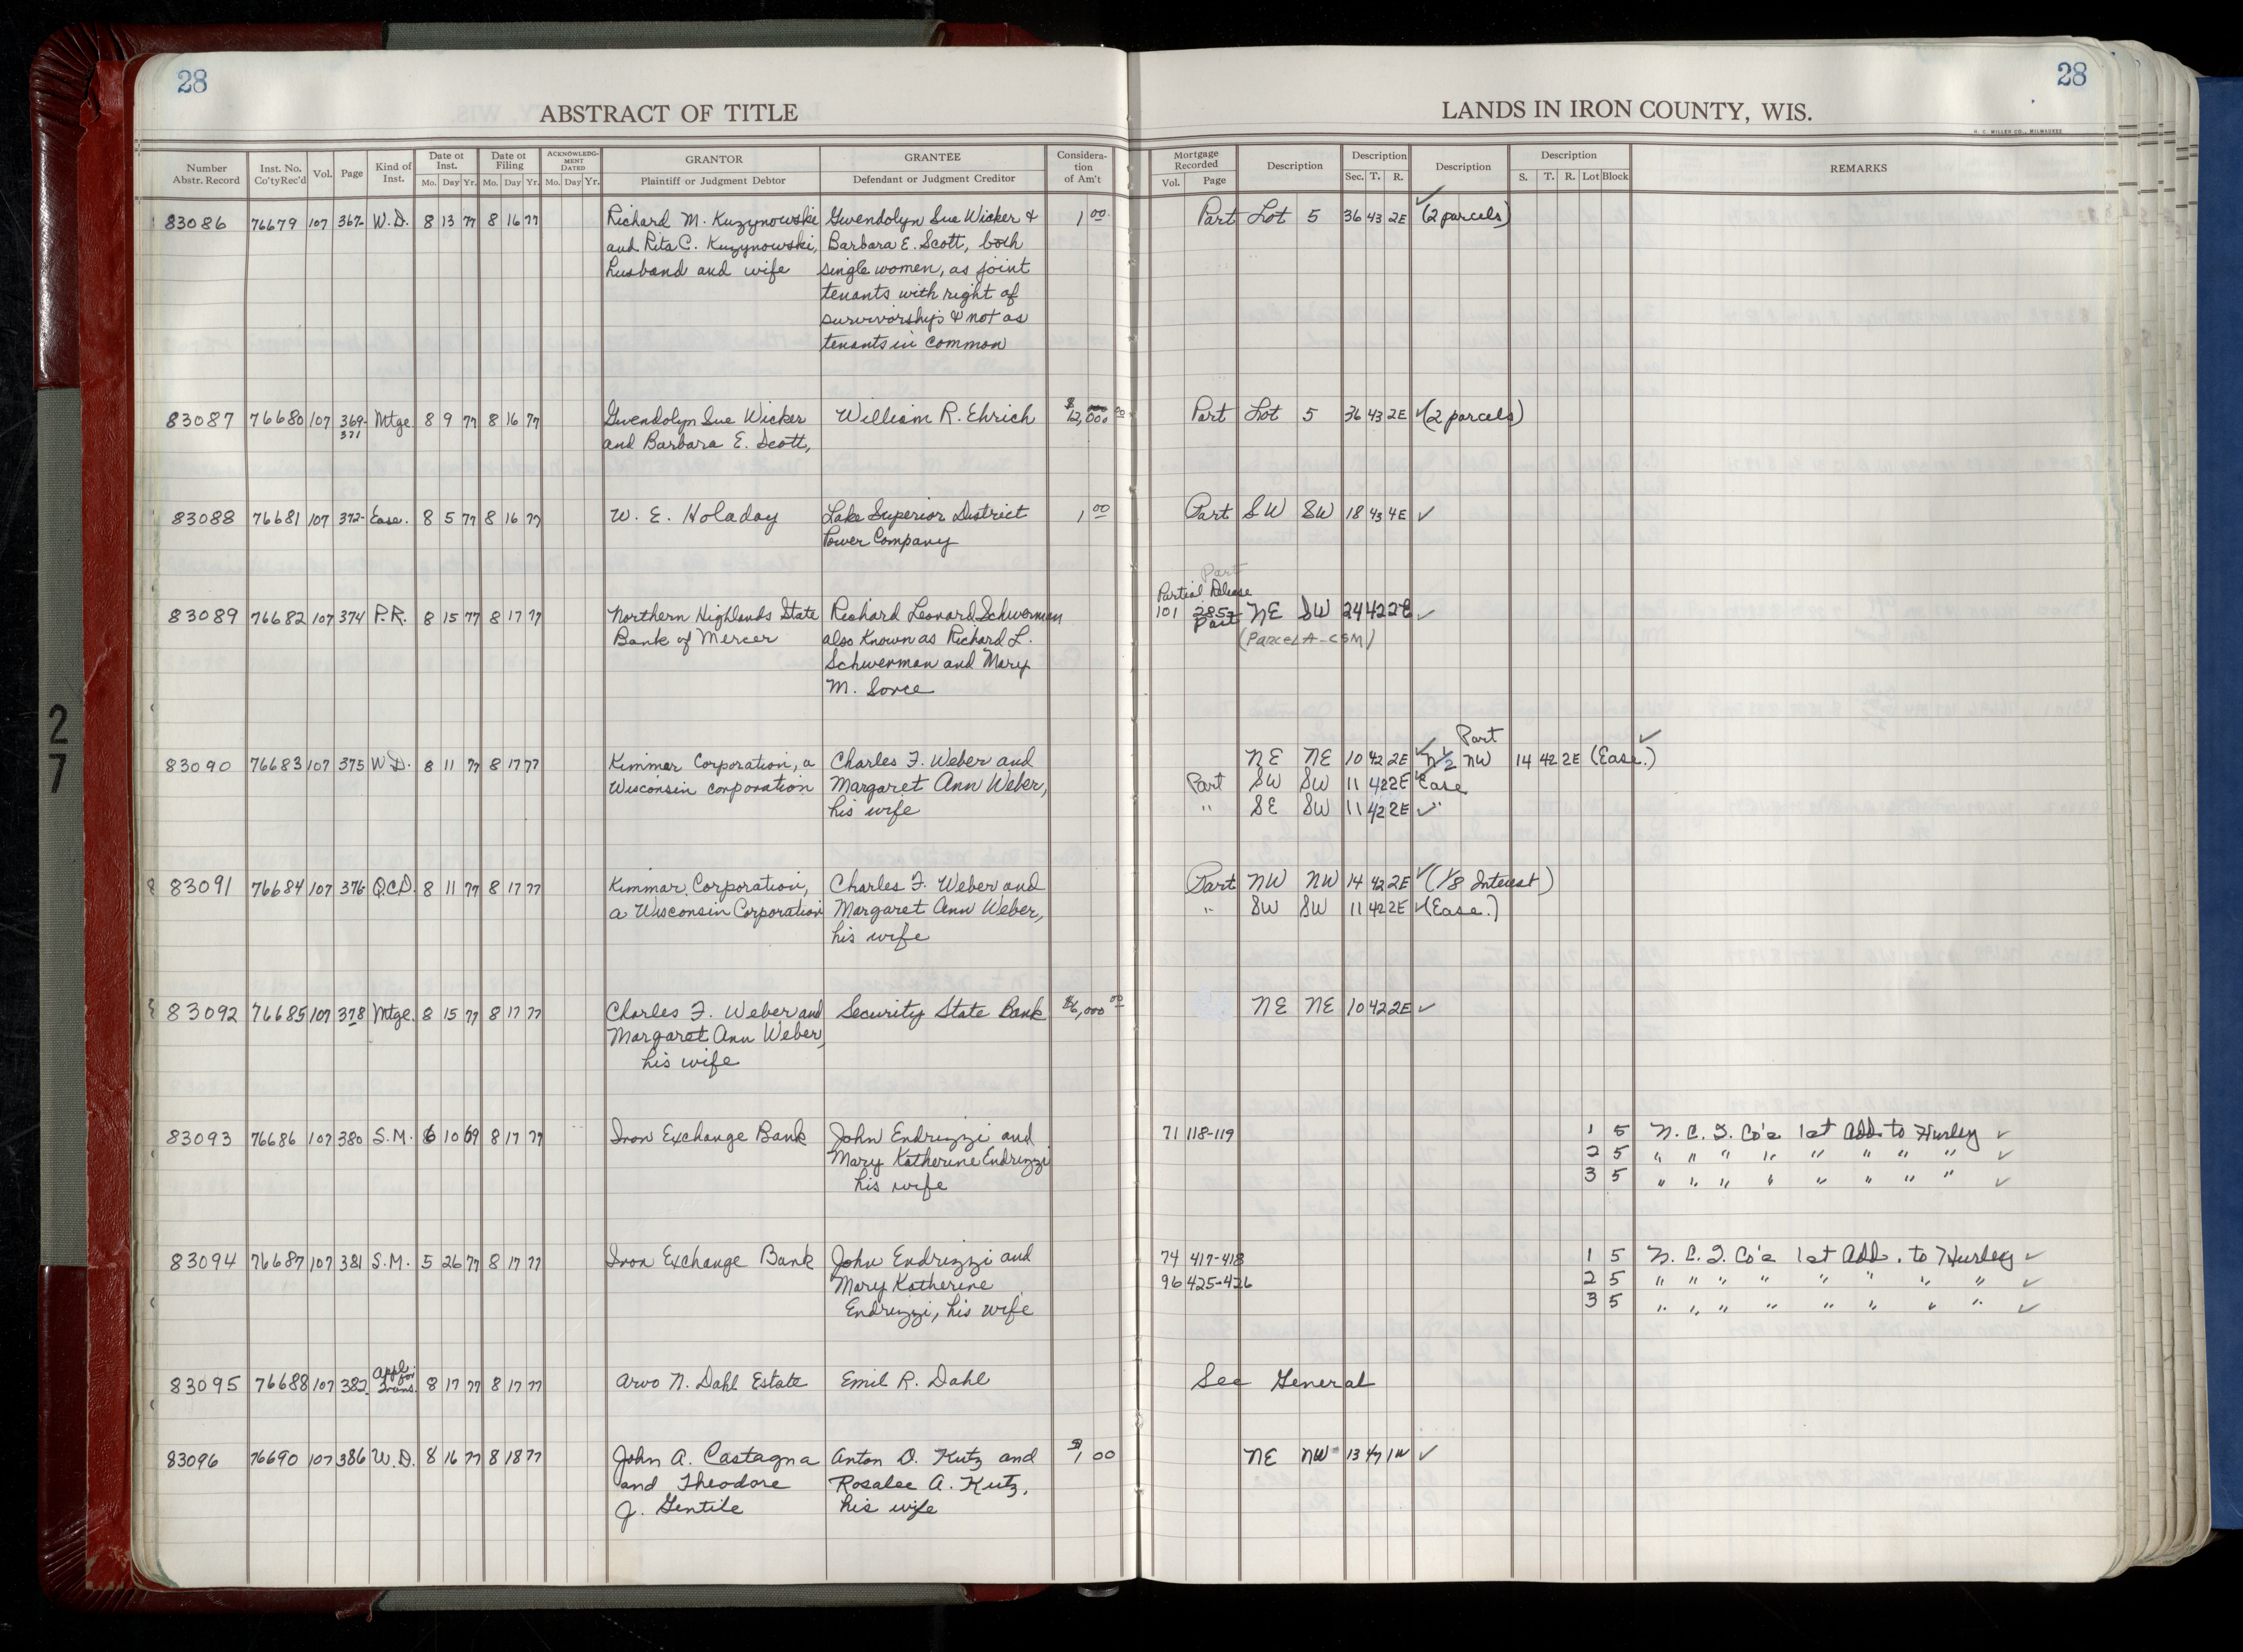 28
ABSTRACT OF TITLE
LANDS IN IRON COUNTY, WIS.
28
H. C. MILLER CO., MILWAUKEE
Number Abstr. Record | Inst. No. Co'ty Rec'd | Vol. | Page | Kind of Inst. | Date of Inst. Mo. Day Yr. | Date of Filing Mo. Day Yr. | ACKNOWLEDGMENT DATED Mo. Day Yr. | GRANTOR Plaintiff or Judgment Debtor | GRANTEE Defendant or Judgment Creditor | Consideration of Am't | Mortgage Recorded Vol. Page | Description | Description Sec. T. R. | Description | Description S. T. R. Lot Block | REMARKS
83086 76679 107 367- W.D. 8 13 77 8 16 77 Richard M. Kuzynowski Gwendolyn Sue Wicker & 1 00 Part Lot 5 36 43 2E ✓ (2 parcels)
and Rita C. Kuzynowski, Barbara E. Scott, both
husband and wife single women, as joint
tenants with right of
survivorship & not as
tenants in common
83087 76680 107 369- Mtge 8 9 77 8 16 77 Gwendolyn Sue Wicker William R. Ehrich $12,000 00 Part Lot 5 36 43 2E ✓ (2 parcels)
371 and Barbara E. Scott,
83088 76681 107 372- Ease. 8 5 77 8 16 77 W. E. Holaday Lake Superior District 1 00 Part SW SW 18 43 4E ✓
Power Company
Part
Partial Release
83089 76682 107 374 P.R. 8 15 77 8 17 77 Northern Highlands State Richard Leonard Schwerman 101 285- NE SW 24 42 2E ✓
Bank of Mercer also Known as Richard L. Part (Parcel A-CSM)
Schwerman and Mary
M. Sorce
Part ✓
83090 76683 107 375 W.D. 8 11 77 8 17 77 Kimmar Corporation, a Charles F. Weber and NE NE 10 42 2E ✓ N½ NW 14 42 2E (Ease.)
Wisconsin corporation Margaret Ann Weber, Part SW SW 11 42 2E ✓ Ease
his wife " SE SW 11 42 2E ✓ "
83091 76684 107 376 Q.C.D. 8 11 77 8 17 77 Kimmar Corporation, Charles F. Weber and Part NW NW 14 42 2E ✓ (1/8 Interest)
a Wisconsin Corporation Margaret Ann Weber, " SW SW 11 42 2E ✓ (Ease.)
his wife
83092 76685 107 378 Mtge. 8 15 77 8 17 77 Charles F. Weber and Security State Bank $6,000 00 NE NE 10 42 2E ✓
Margaret Ann Weber,
his wife
83093 76686 107 380 S.M. 6 10 69 8 17 77 Iron Exchange Bank John Endrizzi and 71 118-119 1 5 N. C. I. Co's 1st Add. to Hurley ✓
Mary Katherine Endrizzi 2 5 " " " " " " " " ✓
his wife 3 5 " " " " " " " " ✓
83094 76687 107 381 S.M. 5 26 77 8 17 77 Iron Exchange Bank John Endrizzi and 74 417-418 1 5 N. C. I. Co's 1st Add. to Hurley ✓
Mary Katherine 96 425-426 2 5 " " " " " " " " ✓
Endrizzi, his wife 3 5 " " " " " " " " ✓
83095 76688 107 382 Appl. for Trans. 8 17 77 8 17 77 Arvo N. Dahl Estate Emil R. Dahl See General
83096 76690 107 386 W.D. 8 16 77 8 18 77 John A. Castagna Anton O. Kutz and $1 00 NE NW 13 47 1W ✓
and Theodore Rosalee A. Kutz,
J. Gentile his wife
27